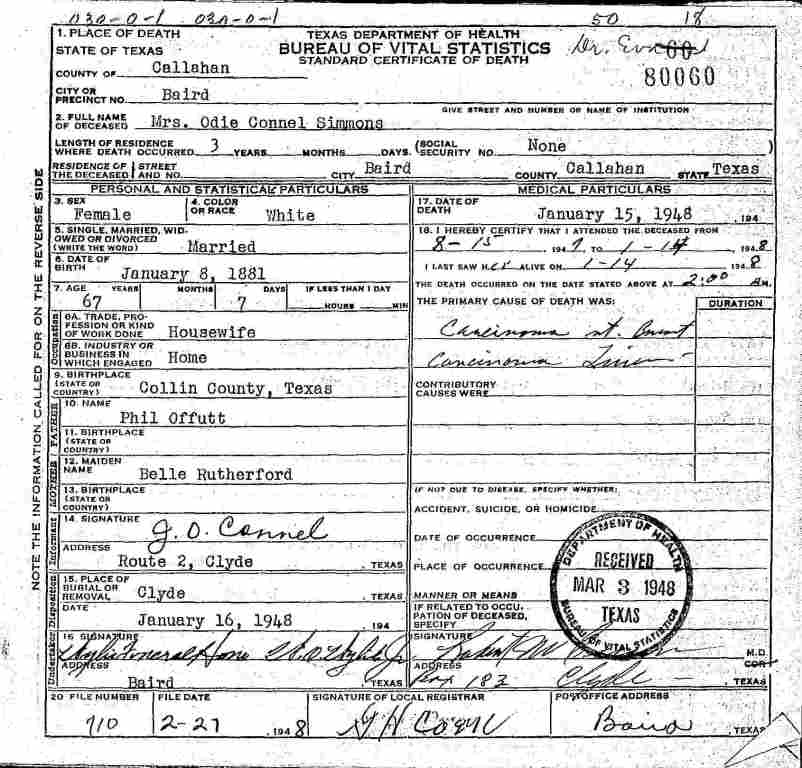 030-0-1 030-0-1 50 18
1. PLACE OF DEATH
STATE OF TEXAS
TEXAS DEPARTMENT OF HEALTH
BUREAU OF VITAL STATISTICS
STANDARD CERTIFICATE OF DEATH
Dr.
80060
COUNTY OF Callahan
CITY OR
PRECINCT NO. Baird
GIVE STREET AND NUMBER OR NAME OF INSTITUTION
2. FULL NAME
OF DECEASED Mrs. Odie Connel Simmons
LENGTH OF RESIDENCE
WHERE DEATH OCCURRED 3 YEARS MONTHS DAYS. (SOCIAL SECURITY NO. None )
RESIDENCE OF THE DECEASED STREET AND NO. CITY Baird COUNTY Callahan STATE Texas
PERSONAL AND STATISTICAL PARTICULARS
3. SEX Female
4. COLOR OR RACE White
5. SINGLE, MARRIED, WIDOWED OR DIVORCED
(WRITE THE WORD) Married
6. DATE OF
BIRTH January 8, 1881
7. AGE YEARS MONTHS DAYS IF LESS THAN 1 DAY
67 7 HOURS MIN
8A. TRADE, PROFESSION OR KIND
OF WORK DONE Housewife
8B. INDUSTRY OR
BUSINESS IN
WHICH ENGAGED Home
9. BIRTHPLACE
(STATE OR
COUNTRY) Collin County, Texas
10. NAME
Phil Offutt
11. BIRTHPLACE
(STATE OR
COUNTRY)
12. MAIDEN
NAME Belle Rutherford
13. BIRTHPLACE
(STATE OR
COUNTRY)
14. SIGNATURE
J. O. Connel
ADDRESS
Route 2, Clyde , TEXAS
15. PLACE OF
BURIAL OR
REMOVAL Clyde , TEXAS
DATE
January 16, 1948 , 194
16 SIGNATURE
Wylie Funeral Home
ADDRESS
Baird , TEXAS
MEDICAL PARTICULARS
17. DATE OF
DEATH January 15, 1948 , 194
18. I HEREBY CERTIFY THAT I ATTENDED THE DECEASED FROM
8-15 1947, TO 1-14, 1948
I LAST SAW Her ALIVE ON 1-14 1948
THE DEATH OCCURRED ON THE DATE STATED ABOVE AT 2:00 AM.
THE PRIMARY CAUSE OF DEATH WAS: DURATION
Carcinoma rt. Breast
Carcinoma
CONTRIBUTORY
CAUSES WERE
IF NOT DUE TO DISEASE, SPECIFY WHETHER:
ACCIDENT, SUICIDE, OR HOMICIDE
DATE OF OCCURRENCE
PLACE OF OCCURRENCE
MANNER OR MEANS
IF RELATED TO OCCUPATION OF DECEASED,
SPECIFY
DEPARTMENT OF HEALTH
RECEIVED
MAR 3 1948
TEXAS
BUREAU OF VITAL STATISTICS
SIGNATURE
M.D.
ADDRESS
Box 183 Clyde TEXAS
20 FILE NUMBER FILE DATE SIGNATURE OF LOCAL REGISTRAR POSTOFFICE ADDRESS
710 2-27 , 1948 Baird , TEXAS
NOTE THE INFORMATION CALLED FOR ON THE REVERSE SIDE
Occupation
FATHER
MOTHER
Informant
Disposition
Undertaker